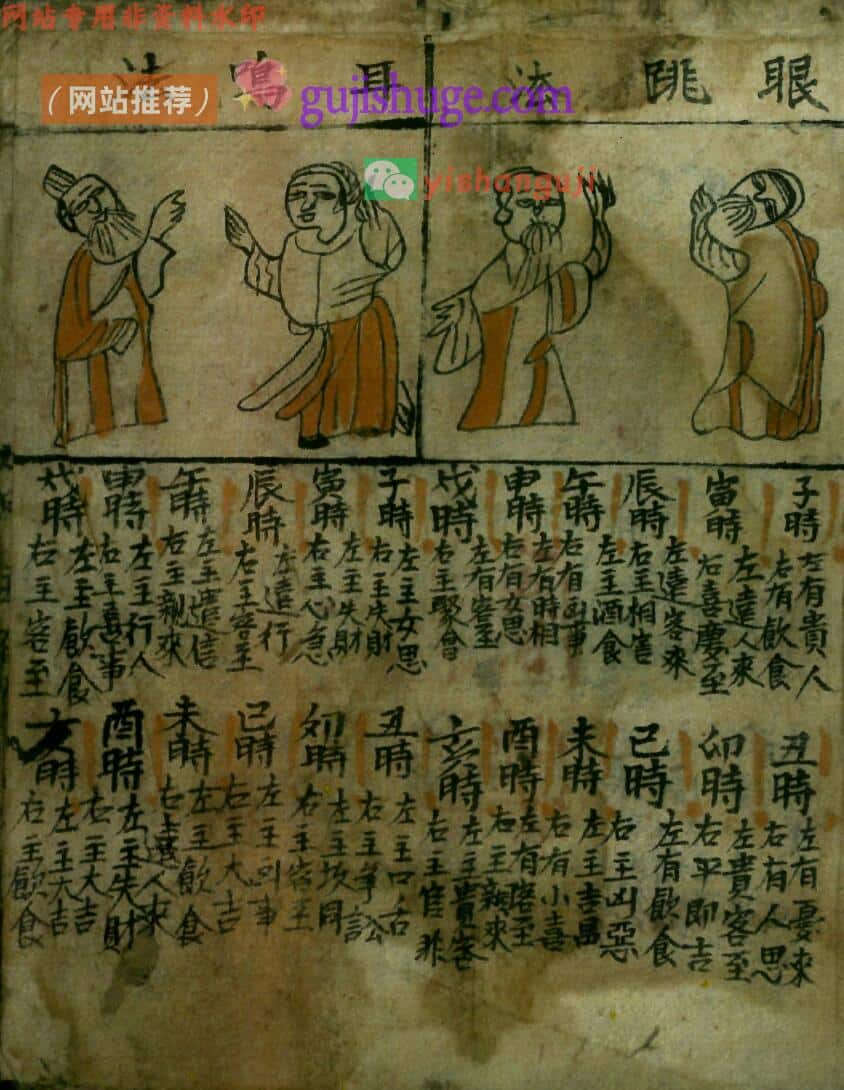 网站专用非资料水印
（网站推荐）
gujishuge.com
yishanguji
眼跳法
子時
左有貴人
右有飲食
寅時
左遠人來
右喜慶至
辰時
左遠客來
右主相害
午時
左主酒食
右有凶事
申時
左有時相
右有女思
戌時
左有客至
右主聚會
丑時
左有憂來
右有人思
卯時
左貴客至
右平即吉
巳時
左有飲食
右主凶惡
未時
左主吉昌
右有小喜
酉時
左有客至
右主親來
亥時
左主貴客
右主官非
耳鳴法
子時
左主女思
右主失財
寅時
左主失財
右主心急
辰時
左遠行
右主客至
午時
左主遠信
右主親來
申時
左主行人
右主喜事
戌時
左主飲食
右主客至
丑時
左主口舌
右主爭訟
卯時
左主
右主客至
巳時
左主凶事
右主大吉
未時
左主飲食
右遠人來
酉時
左主失財
右主大吉
亥時
左主大吉
右主飲食